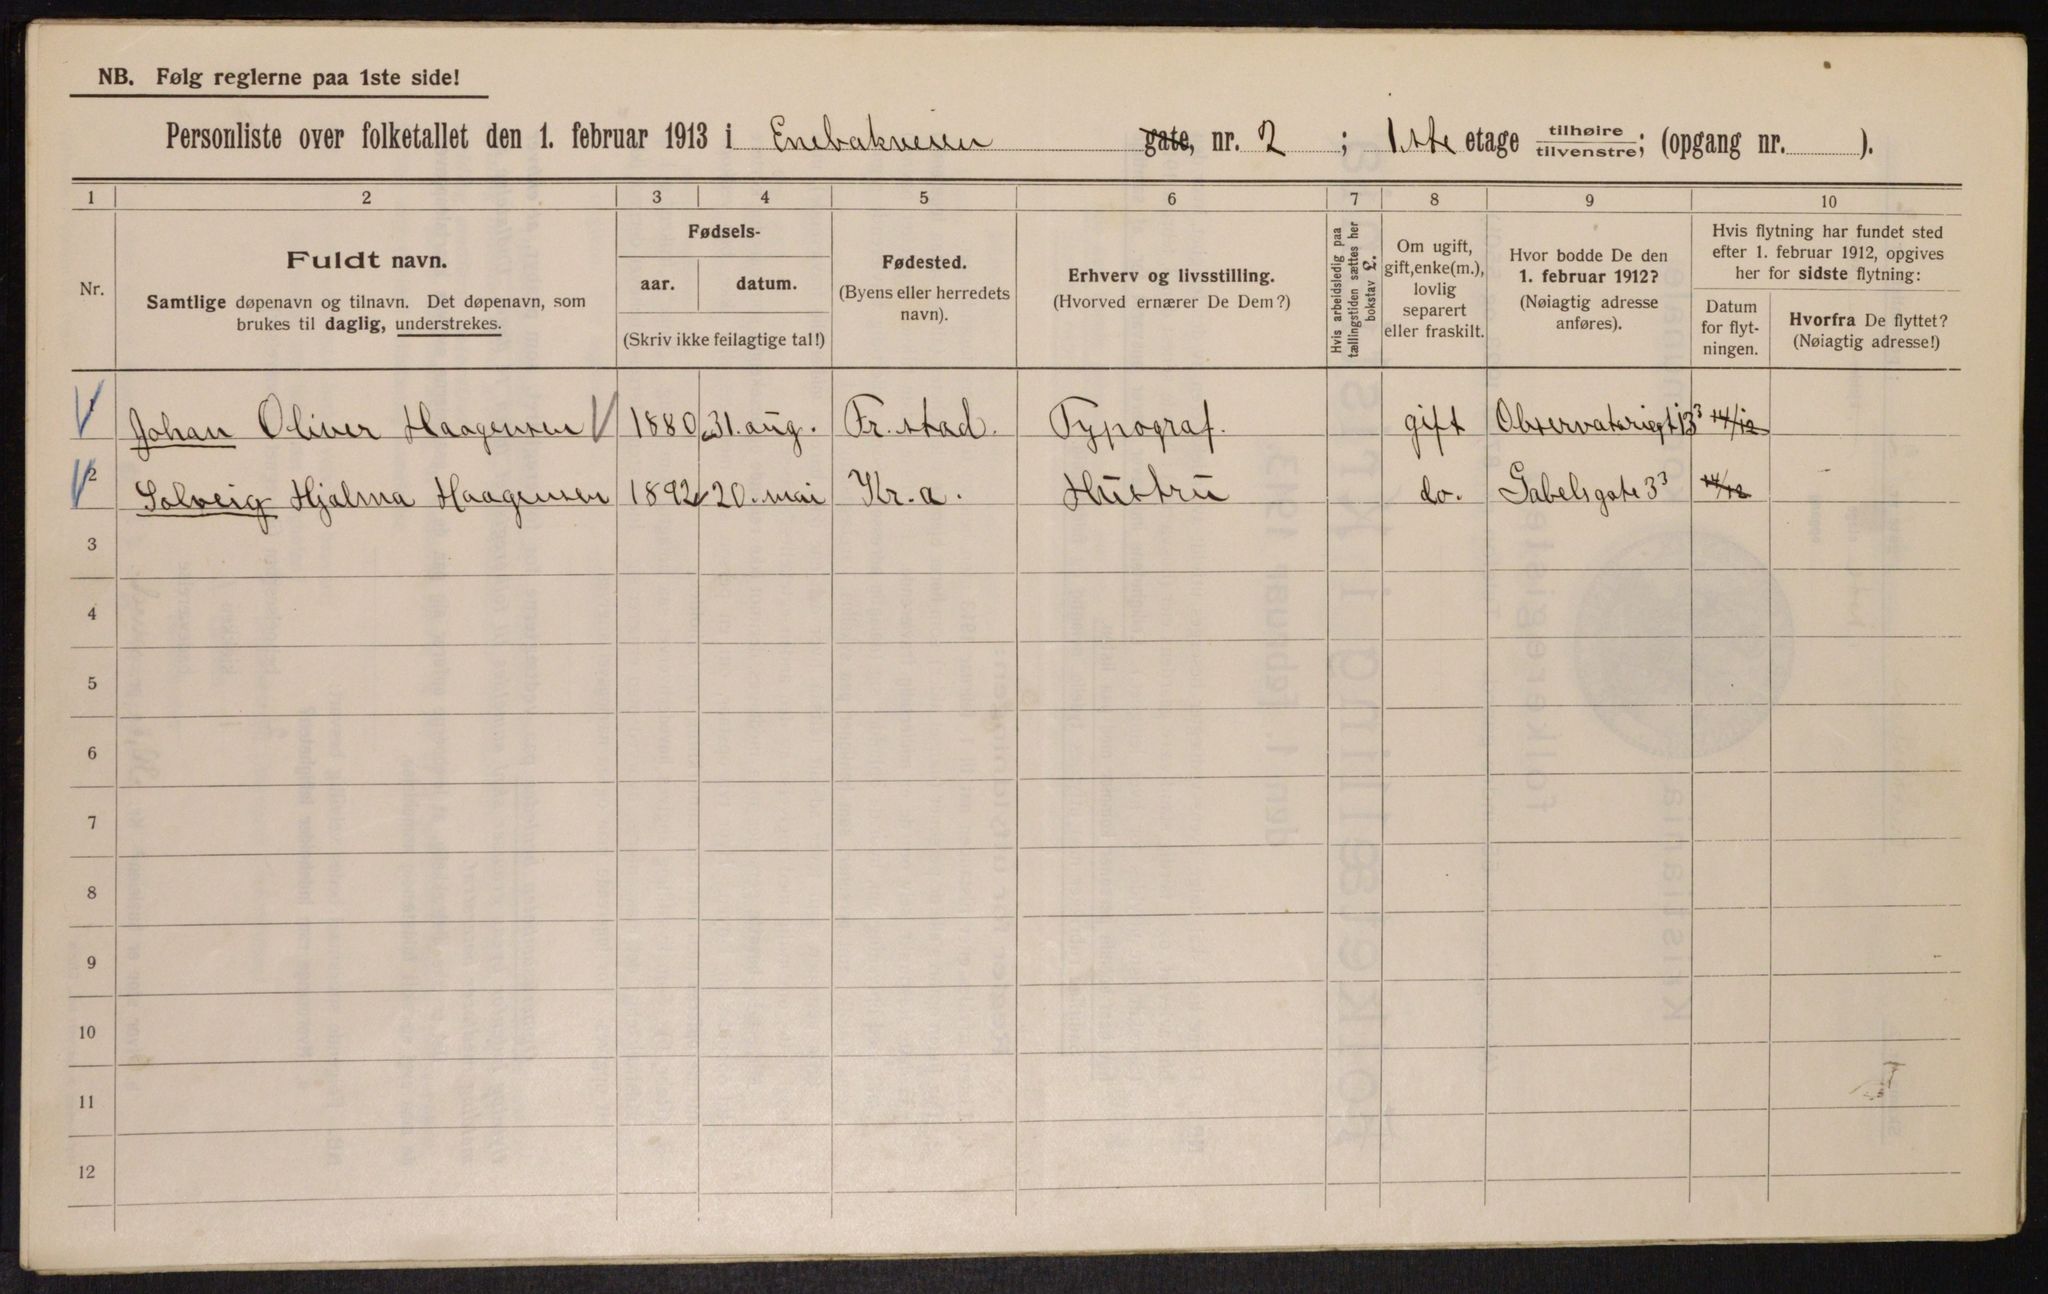 NB. Følg reglerne paa 1ste side!
Personliste over folketallet den 1. februar 1913 i Enebakveien gate, nr. 2 ; 1ste etage tilhøire tilvenstre; (opgang nr. ).
1 2 3 4 5 6 7 8 9 10
Nr.
Fuldt navn.
Samtlige døpenavn og tilnavn. Det døpenavn, som
brukes til daglig, understrekes.
Fødsels-
aar. datum.
(Skriv ikke feilagtige tal!)
Fødested.
(Byens eller herredets
navn).
Erhverv og livsstilling.
(Hvorved ernærer De Dem?)
Hvis arbeidsledig paa
tællingstiden sættes her
bokstav L.
Om ugift,
gift, enke(m.),
lovlig
separert
eller fraskilt.
Hvor bodde De den
1. februar 1912?
(Nøiagtig adresse
anføres).
Hvis flytning har fundet sted
efter 1. februar 1912, opgives
her for sidste flytning:
Datum
for flyt-
ningen.
Hvorfra De flyttet?
(Nøiagtig adresse!)
1 Johan Oliver Haagensen 1880 31. aug. Fr.stad. Typograf. gift Observatoriegt 13³ 14/12
2 Solveig Hjalma Haagensen 1892 20. mai Kr.a. Hustru do. Gabelsgate 3³ 14/12
3
4
5
6
7
8
9
10
11
12